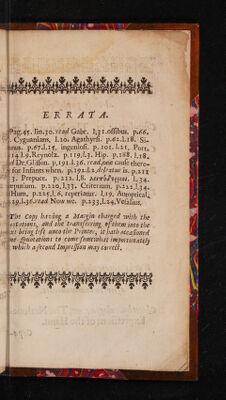 ERRATA.
Pag.45. lin.30. read Gabr. l.31.ossibus. p.66.
Cyguanians, l.20. Agathyrsi. p.62.l.18. Si-
p.67.l.15. ingeniosi. p. 101. l.21. Port.
14.l.9.Reynolz. p.119.l.3. Hip. p.188. l.18.
Dr.Glisson. p.191.l.36. read, one cause there-
for Infants when. p.192.l.2.delratur is. p.212
3. Prepuce. p.212. l.8. l.34.
p.220.l.33. Criterium. p.222.l.34.
Hum. p.225.l.6. reperiantur. l.19. Anoptical,
29.l.36.read Now we. p.233.l.24.Vesalius.
The Copy having a Margin charged with the
Quotations, and the transferring of them into the
being left unto the Printer, it hath occasioned
Quotations to come somewhat importunately
which a second Impression may correct.